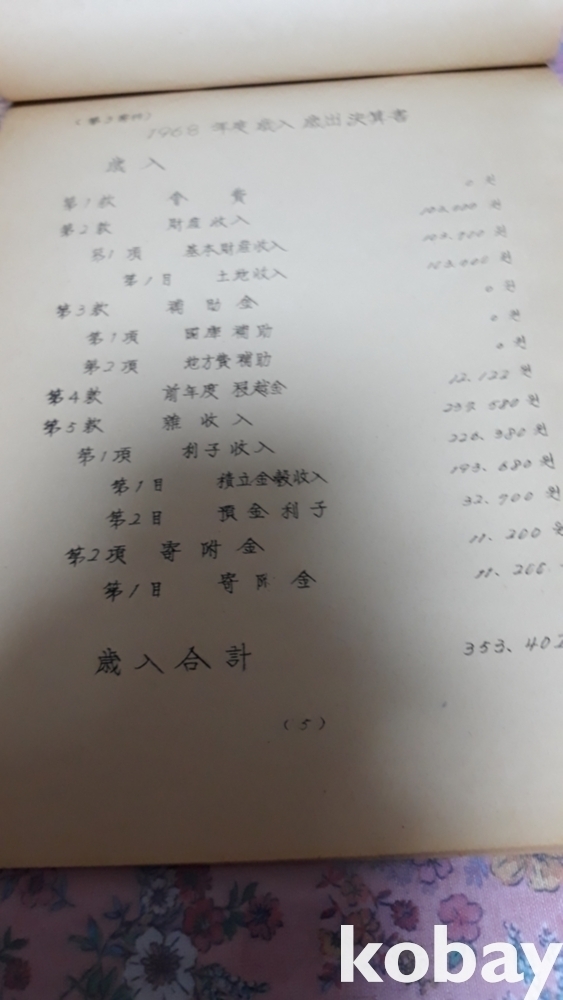 (第3号件)
1968 年度 歳入 歳出 決算書
歳 入
第1款 会 費 0 원
第2款 財産収入 103,700 원
第1項 基本財産収入 103,700 원
第1目 土地収入 103,700 원
第3款 補助金 0 원
第1項 国庫補助 0 원
第2項 地方費補助 0 원
第4款 前年度 繰越金 12,122 원
第5款 雑収入 237,580 원
第1項 利子収入 226,380 원
第1目 積立金穀収入 193,680 원
第2目 預金利子 32,700 원
第2項 寄附金 11,200 원
第1目 寄附金 11,200
歳入合計 353,402
(5)
kobay